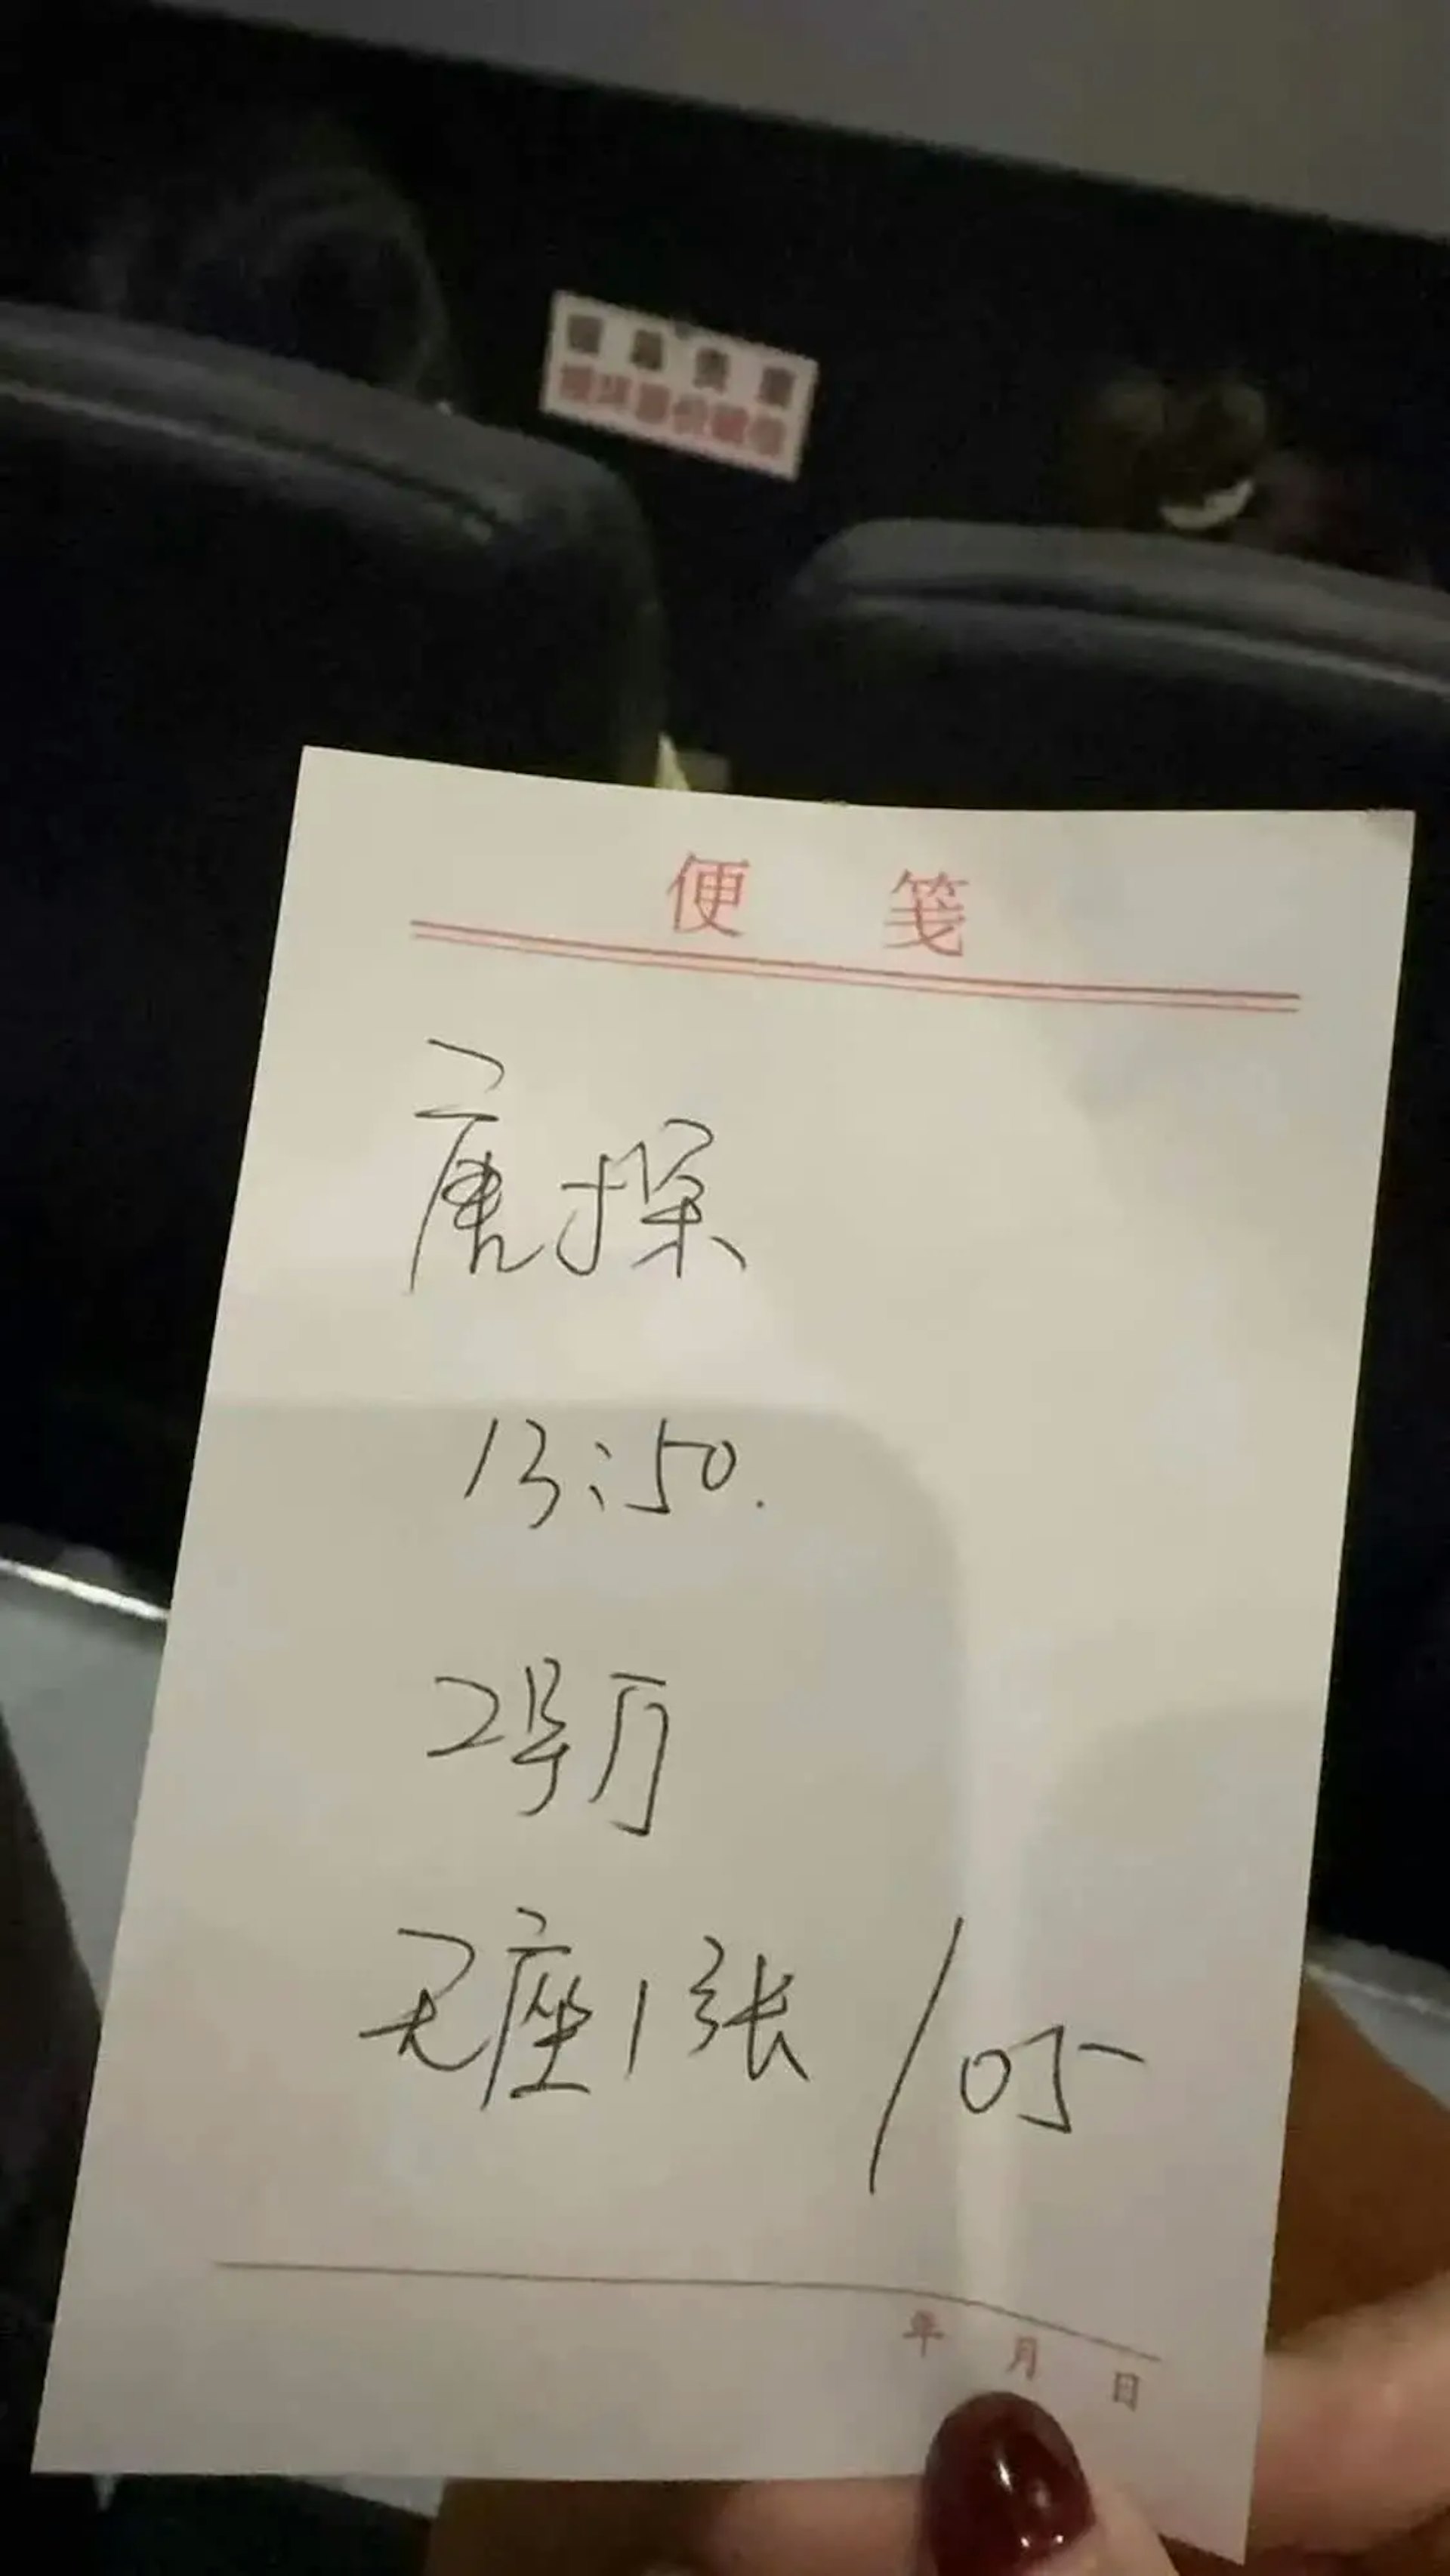 便 笺
唐探
13:50.
2号厅
无座1张/05
年 月 日